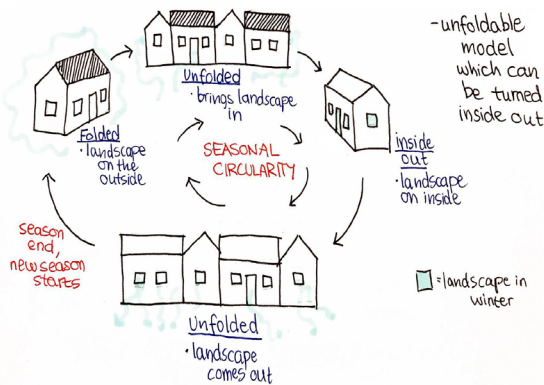 -unfoldable
model
which can
be turned
inside out
Unfolded
• brings landscape
in
Folded
• landscape
on the
outside
SEASONAL
CIRCULARITY
inside
out
• landscape
on inside
season
end,
new season
starts
Unfolded
• landscape
comes out
=landscape in
winter